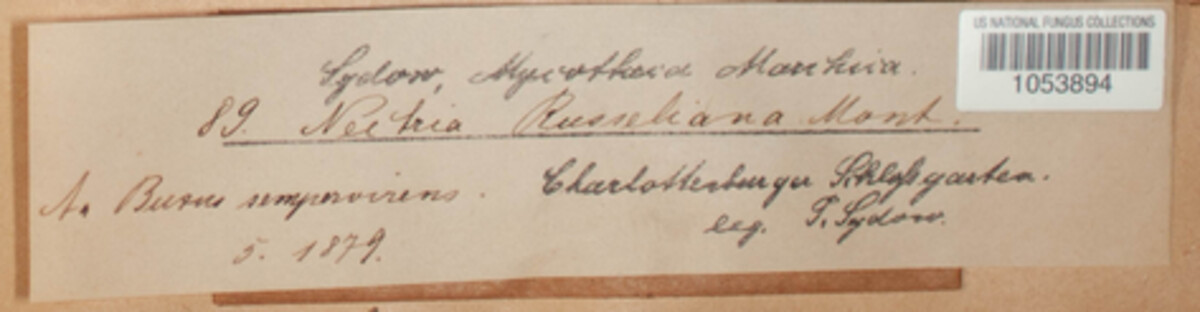 US NATIONAL FUNGUS COLLECTIONS
1053894
Sydow, Mycotheca Marchica.
89. Nectria Russeliana Mont.
An Buxus sempervirens.
5. 1879.
Charlottenburger Schloßgarten.
leg. P. Sydow.